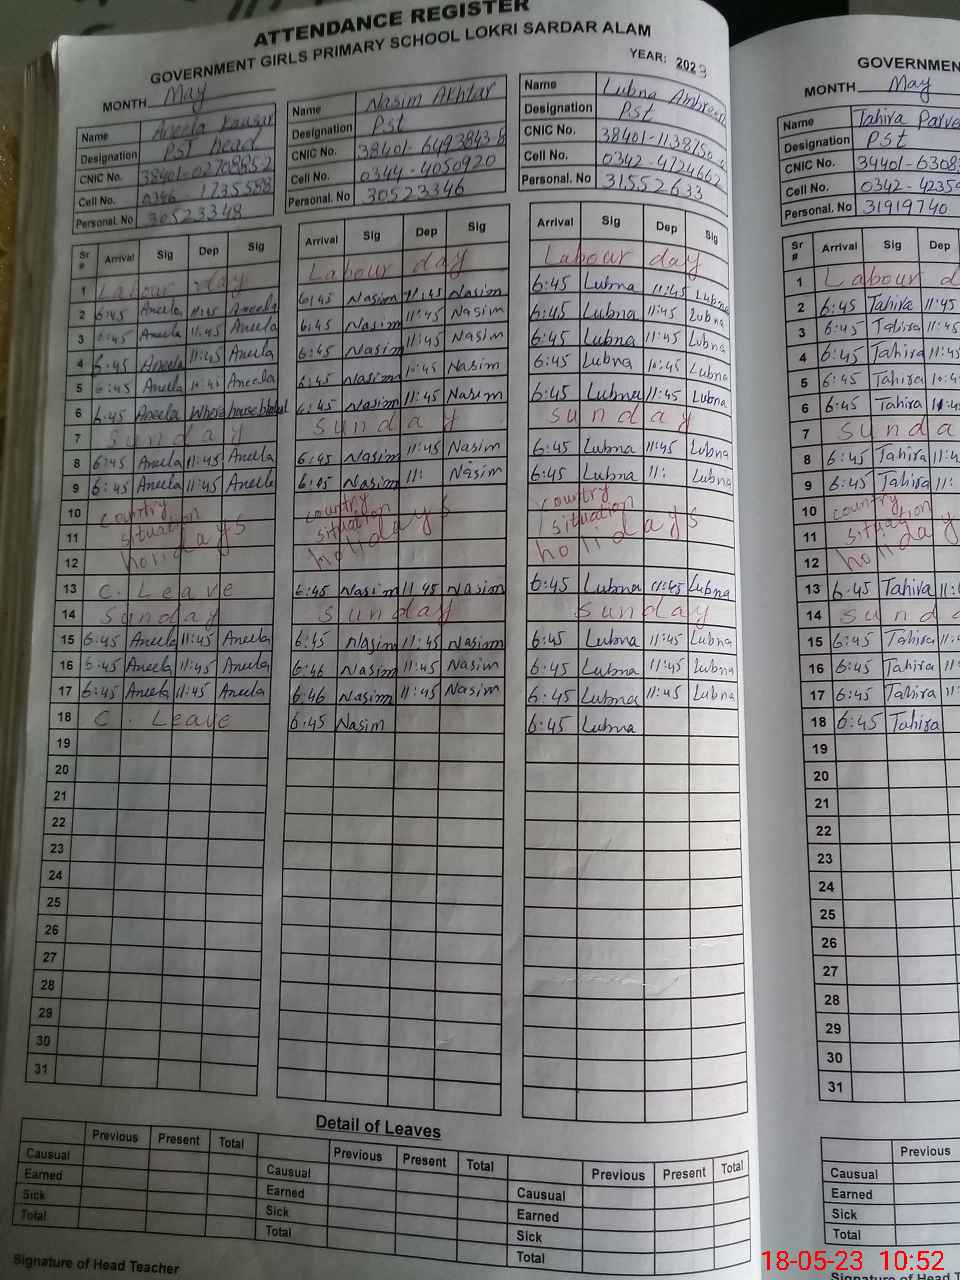 ATTENDANCE REGISTER
GOVERNMENT GIRLS PRIMARY SCHOOL LOKRI SARDAR ALAM
YEAR: 2023
MONTH May
Name Aneela Kausar
Designation PST head
CNIC No.
Cell No. 0346 1735588
Personal. No 30523348
Name Nasim Akhtar
Designation Pst
CNIC No. 38401-6493843-8
Cell No. 0344-4050920
Personal. No 30523346
Name Lubna Ambreen
Designation Pst
CNIC No. 38401-1138750-
Cell No. 0342-4724662
Personal. No 31552633
Sr # Arrival Sig Dep Sig Arrival Sig Dep Sig Arrival Sig Dep Sig
1 Labour day Labour day Labour day
2 6:45 Aneela 11:45 Aneela 6:45 Nasim 11:45 Nasim 6:45 Lubna 11:45 Lubna
3 6:45 Aneela 11:45 Aneela 6:45 Nasim 11:45 Nasim 6:45 Lubna 11:45 Lubna
4 6:45 Aneela 11:45 Aneela 6:45 Nasim 11:45 Nasim 6:45 Lubna 11:45 Lubna
5 6:45 Aneela 10:45 Aneela 6:45 Nasim 10:45 Nasim 6:45 Lubna 10:45 Lubna
6 6:45 Aneela 6:45 Nasim 11:45 Nasim 6:45 Lubna 11:45 Lubna
7 Sunday Sunday Sunday
8 6:45 Aneela 11:45 Aneela 6:45 Nasim 11:45 Nasim 6:45 Lubna 11:45 Lubna
9 6:45 Aneela 11:45 Aneela 6:45 Nasim 11: Nasim 6:45 Lubna 11: Lubna
10 country country country
11 situation situation situation
12 holidays holidays holidays
13 C. Leave 6:45 Nasim 11:45 Nasim 6:45 Lubna 11:45 Lubna
14 Sunday Sunday Sunday
15 6:45 Aneela 11:45 Aneela 6:45 Nasim 11:45 Nasim 6:45 Lubna 11:45 Lubna
16 6:45 Aneela 11:45 Aneela 6:46 Nasim 11:45 Nasim 6:45 Lubna 11:45 Lubna
17 6:45 Aneela 11:45 Aneela 6:46 Nasim 11:45 Nasim 6:45 Lubna 11:45 Lubna
18 C. Leave 6:45 Nasim 6:45 Lubna
19
20
21
22
23
24
25
26
27
28
29
30
31
Detail of Leaves
Previous Present Total Previous Present Total Previous Present Total
Causual Causual Causual
Earned Earned Earned
Sick Sick Sick
Total Total Total
Signature of Head Teacher
GOVERNMEN
MONTH May
Name Tahira Parve
Designation Pst
CNIC No. 34401-6308
Cell No. 0342-4235
Personal. No 31919740
Sr # Arrival Sig Dep
1 Labour d
2 6:45 Tahira 11:45
3 6:45 Tahira 11:45
4 6:45 Tahira 11:45
5 6:45 Tahira 10:4
6 6:45 Tahira 11:45
7 Sunda
8 6:45 Tahira 11:4
9 6:45 Tahira 11:
10 country
11 situation
12 holiday
13 6:45 Tahira 11:
14 Sund
15 6:45 Tahira 11:4
16 6:45 Tahira 11:4
17 6:45 Tahira 11:4
18 6:45 Tahira
19
20
21
22
23
24
25
26
27
28
29
30
31
Previous
Causual
Earned
Sick
Total
Signature of Head T
18-05-23 10:52